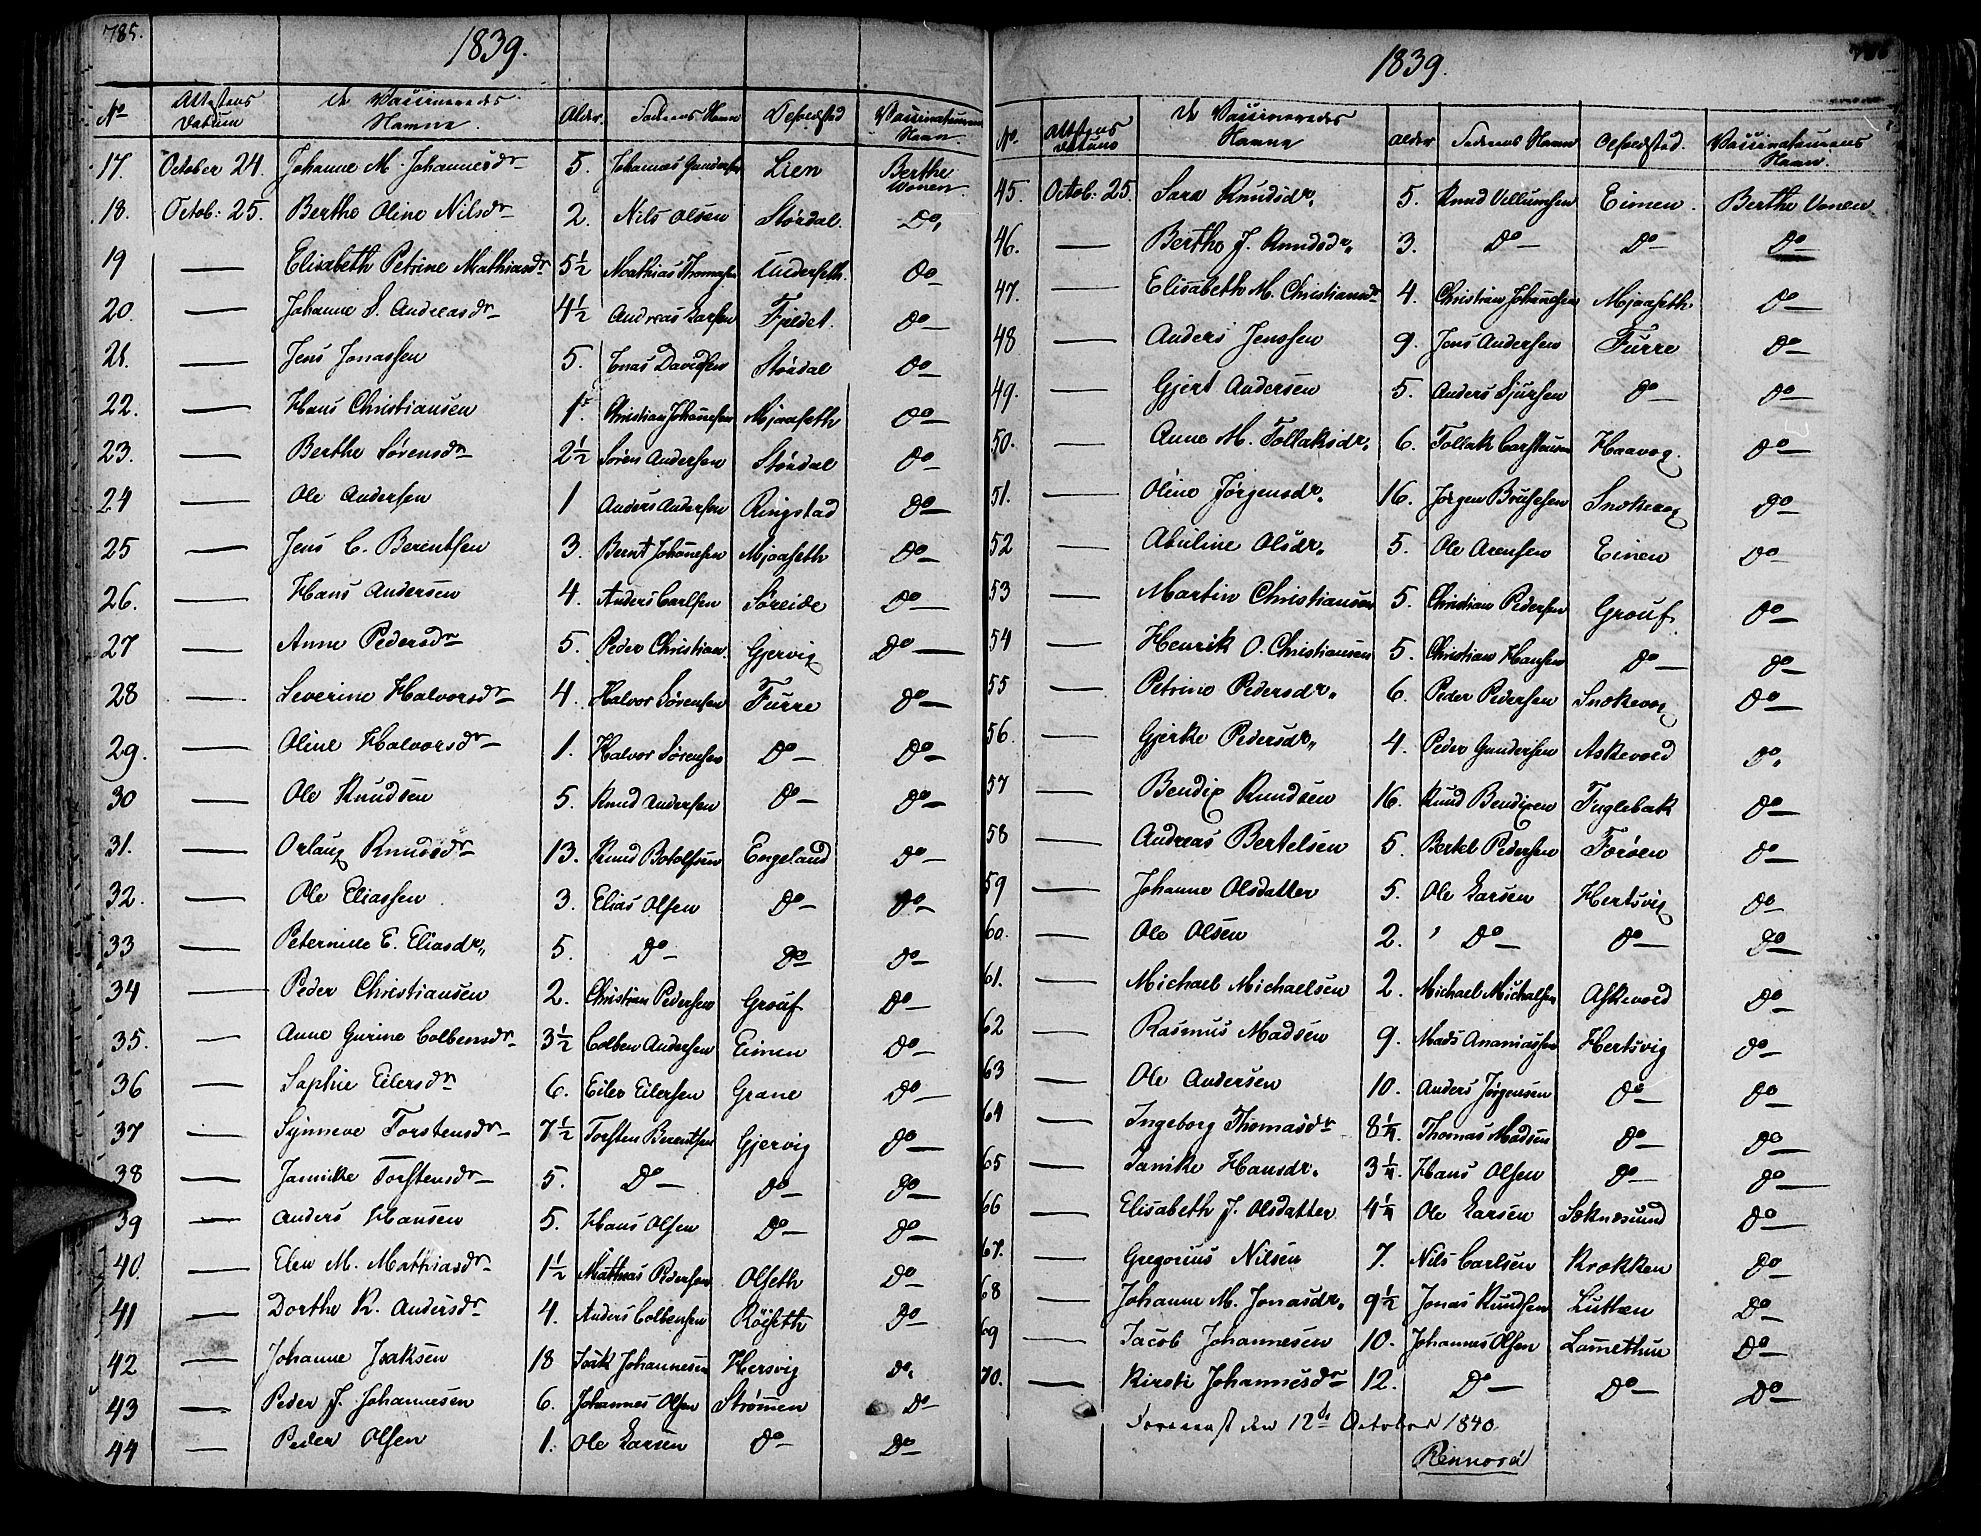 785.
1839.
No Attestens Datum De Vaccineredes Namne. Alder Faderens Navn Opholdsted Vaccinateurens Navn.
17. October 24. Johanne M. Johannesdr 5. Johannes Gundersen Lien Berthe Wonen
18. Octob: 25. Berthe Oline Nilsdr 2. Nils Olsen Stördal. Do.
19 — Elisabeth Petrine Mathiasdr 5½ Mathias Thomasen Underseth. Do
20. — Johanne S. Andreasdr 4½ Andreas Larsen Fjeldet. Do
21. — Jens Jonassen 5. Jonas Davidsen Stördal Do
22. — Hans Christiansen 1. Christian Johannesen Mjaaseth Do
23. — Berthe Sörensdr 2½ Sören Andersen Stördal Do
24 — Ole Andersen 1 Anders Andersen Ringstad Do
25 — Jens C. Berentsen 3. Bernt Johannesen Mjaaseth Do
26. — Hans Andersen 4. Anders Carlsen Söreide Do
27 — Anne Pedersdr 5. Peder Christian. Gjervig Do
28 — Severine Halvorsdr 4. Halvor Sörensen Furre Do
29. — Oline Halvorsdr 1. Halvor Sörensen Do Do
30 — Ole Knudsen 5. Knud Andersen Do Do
31. — Orlaug Knudsdr 13. Knud Botolfsen Engeland Do
32. — Ole Eliassen 3. Elias Olsen Do Do
33 — Peternille E. Eliasdr. 5. Do Do Do
34 — Peder Christiansen 2. Christian Pedersen Grouf Do
35. — Anne Gurine Colbensdr. 3½ Colben Andersen Eimen Do
36 — Sophie Eilersdr 6. Eiler Eilersen Grane Do
37 — Synneve Torstensdr 7½ Torsten Berentsen Gjervig Do
38 — Jannike Torstensdr 5. Do Do Do
39 — Anders Hansen 5. Hans Olsen Do Do
40. — Elen M. Mathiasdr 1½ Mathias Pedersen Olseth Do
41 — Dorthe K. Andersdr 4. Anders Colbensen Röiseth Do
42 — Johanne Isaksen 18 Isak Johannesen Hersvig Do.
43 — Peder J. Johannesen 6. Johannes Olsen Strömen Do
44 — Peder Olsen 1. Ole Larsen Do Do
1839.
No. Attestens Datum De Vaccineredes Namne Alder Faderens Navn Opholdsted. Vaccinateurens Navn.
45. Octob: 25. Sara Knudsdr. 5. Knud Villumsen Eimen. Berthe Vonen
46. — Berthe J. Knudsdr. 3. Do Do Do
47. — Elisabeth M. Christiansdr 4. Christian Johannesen Mjaaseth. Do
48 — Anders Jenssen 9. Jens Andersen Furre Do
49. — Gjert Andersen 5. Anders Sjursen Do Do
50. — Anne M. Tollaksdr. 6. Tollak Carstensen Haavog. Do
51. — Oline Jörgensdr. 16. Jörgen Brusesen Snekevog Do
52 — Abuline Olsdr. 5. Ole Arensen Eimen Do
53 — Martin Christiansen 5. Christian Pedersen Grouf. Do
54 — Henrik O. Christiansen 5. Christian Hansen Do Do
55 — Petrine Pedersdr. 6. Peder Pedersen Snekevog Do
56. — Gjerke Pedersdr. 4. Peder Gundersen Askevold Do.
57 — Bendix Knudsen 16. Knud Bendixen Fuglebak Do
58 — Andreas Bertelsen 5. Bertel Pedersen Foröen Do
59 — Johanne Olsdatter 5. Ole Larsen Hertsvig Do
60. — Ole Olsen 2. Do Do Do
61. — Michael Michaelsen 2. Michael Michalsen Askevold Do
62 — Rasmus Madsen 9. Mads Ananiassen Hertsvig Do
63 — Ole Andersen 10. Anders Jörgensen Do Do
64 — Ingeborg Thomasdr 8¼ Thomas Madsen Do Do
65 — Janike Hansdr. 3¼ Hans Olsen Do Do
66 — Elisabeth J. Olsdatter 4¼ Ole Larsen Soknesund Do
67. — Gregorius Nilsen 7. Nils Carlsen Krokken Do
68 — Johanne M. Jonasdr. 9½ Jonas Knudsen Lutten Do
69 — Jacob Johannesen 10. Johannes Olsen Lamethun Do
70. — Kirsti Johannesdr 12. Do Do Do
den 12te October 1840.
Rennord